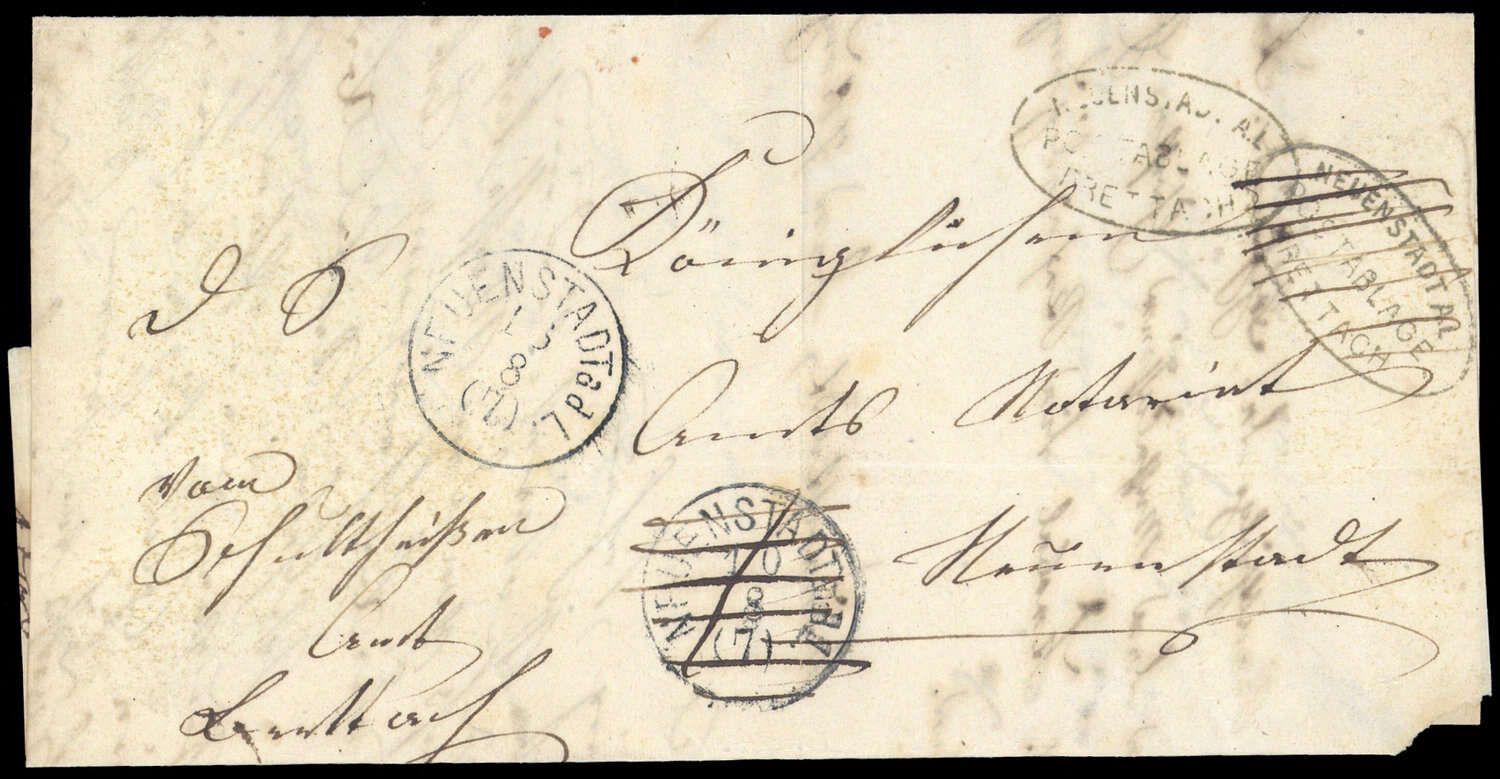 NEUENSTADT A.L
POSTABLAGE
BRETTACH
NEUENSTADT A.L
POSTABLAGE
BRETTACH
Königlichen
d S
NEUENSTADT a d L.
8
(7)
Amts Notariat
vom
Schultheißen
Amt
Brettach
NEUENSTADT
10
8
(7)
Neuenstadt